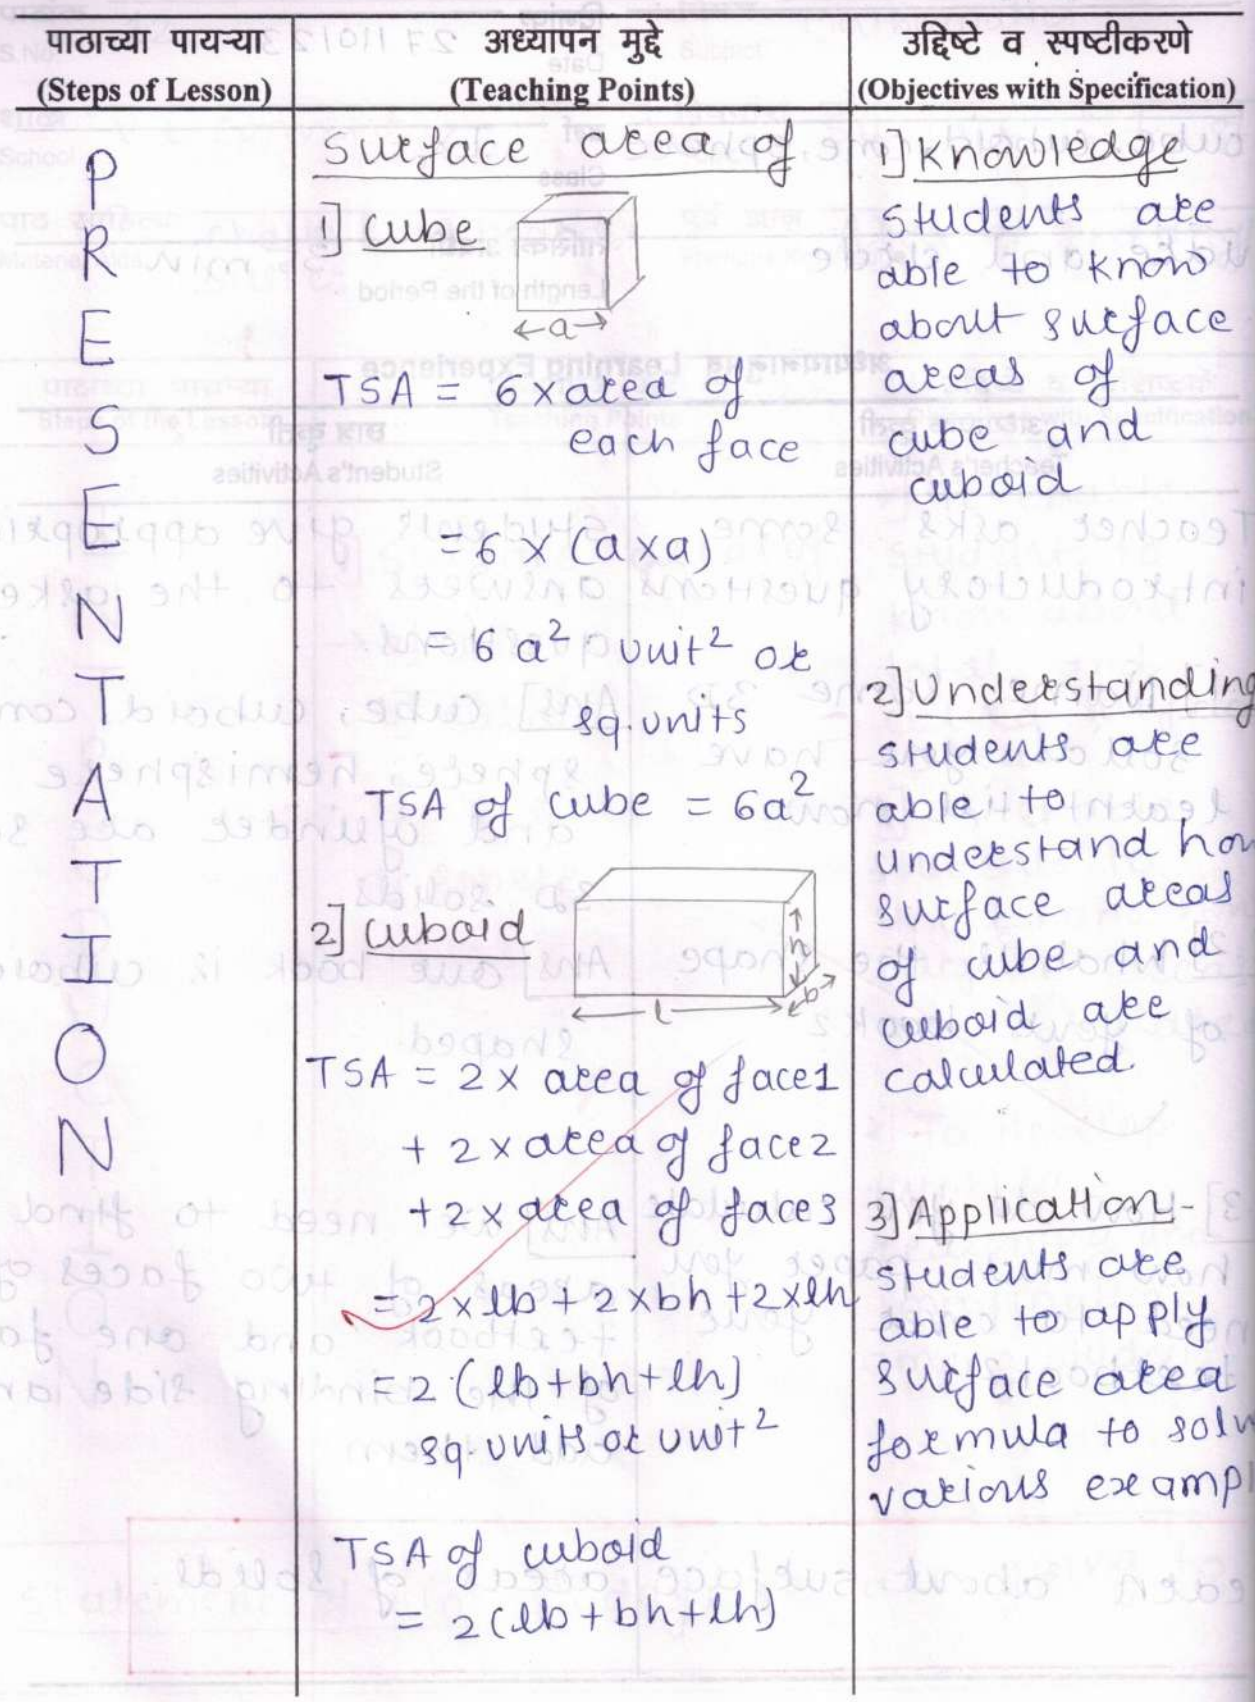 पाठाच्या पायऱ्या
(Steps of Lesson)
अध्यापन मुद्दे
(Teaching Points)
उद्दिष्टे व स्पष्टीकरणे
(Objectives with Specification)
P
R
E
S
E
N
T
A
T
I
O
N
Surface area of
1] Cube
a
TSA = 6 x area of
each face
= 6 x (a x a)
= 6 a² unit² or
sq. units
TSA of cube = 6a²
2] Cuboid
h
b
l
TSA = 2 x area of face1
+ 2 x area of face2
+ 2 x area of face3
= 2 x lb + 2 x bh + 2 x lh
= 2 (lb + bh + lh)
sq. units or unit²
TSA of cuboid
= 2 (lb + bh + lh)
1] Knowledge
Students are
able to know
about surface
areas of
cube and
cuboid
2] Understanding
students are
able to
understand how
surface areas
of cube and
cuboid are
calculated.
3] Application-
students are
able to apply
surface area
formula to solv
various exampl